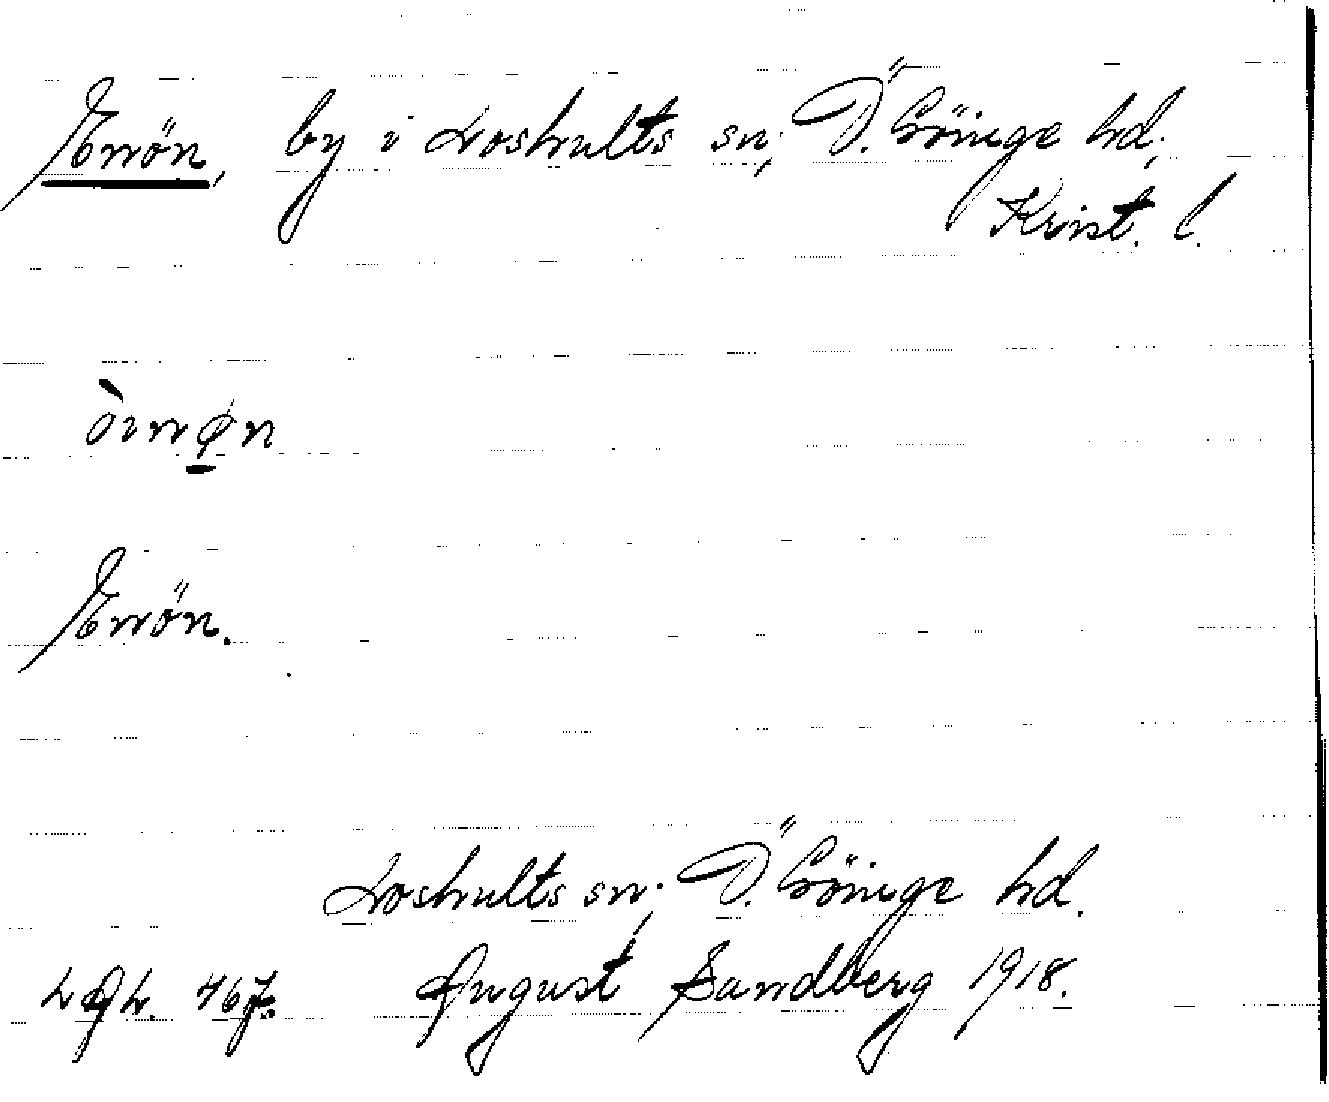 Ennön, by i Loshults sn, Ö. Göinge hd,
Krist. l.
Ennön.
Loshults sn, Ö. Göinge hd.
467. August Sandberg 1918.